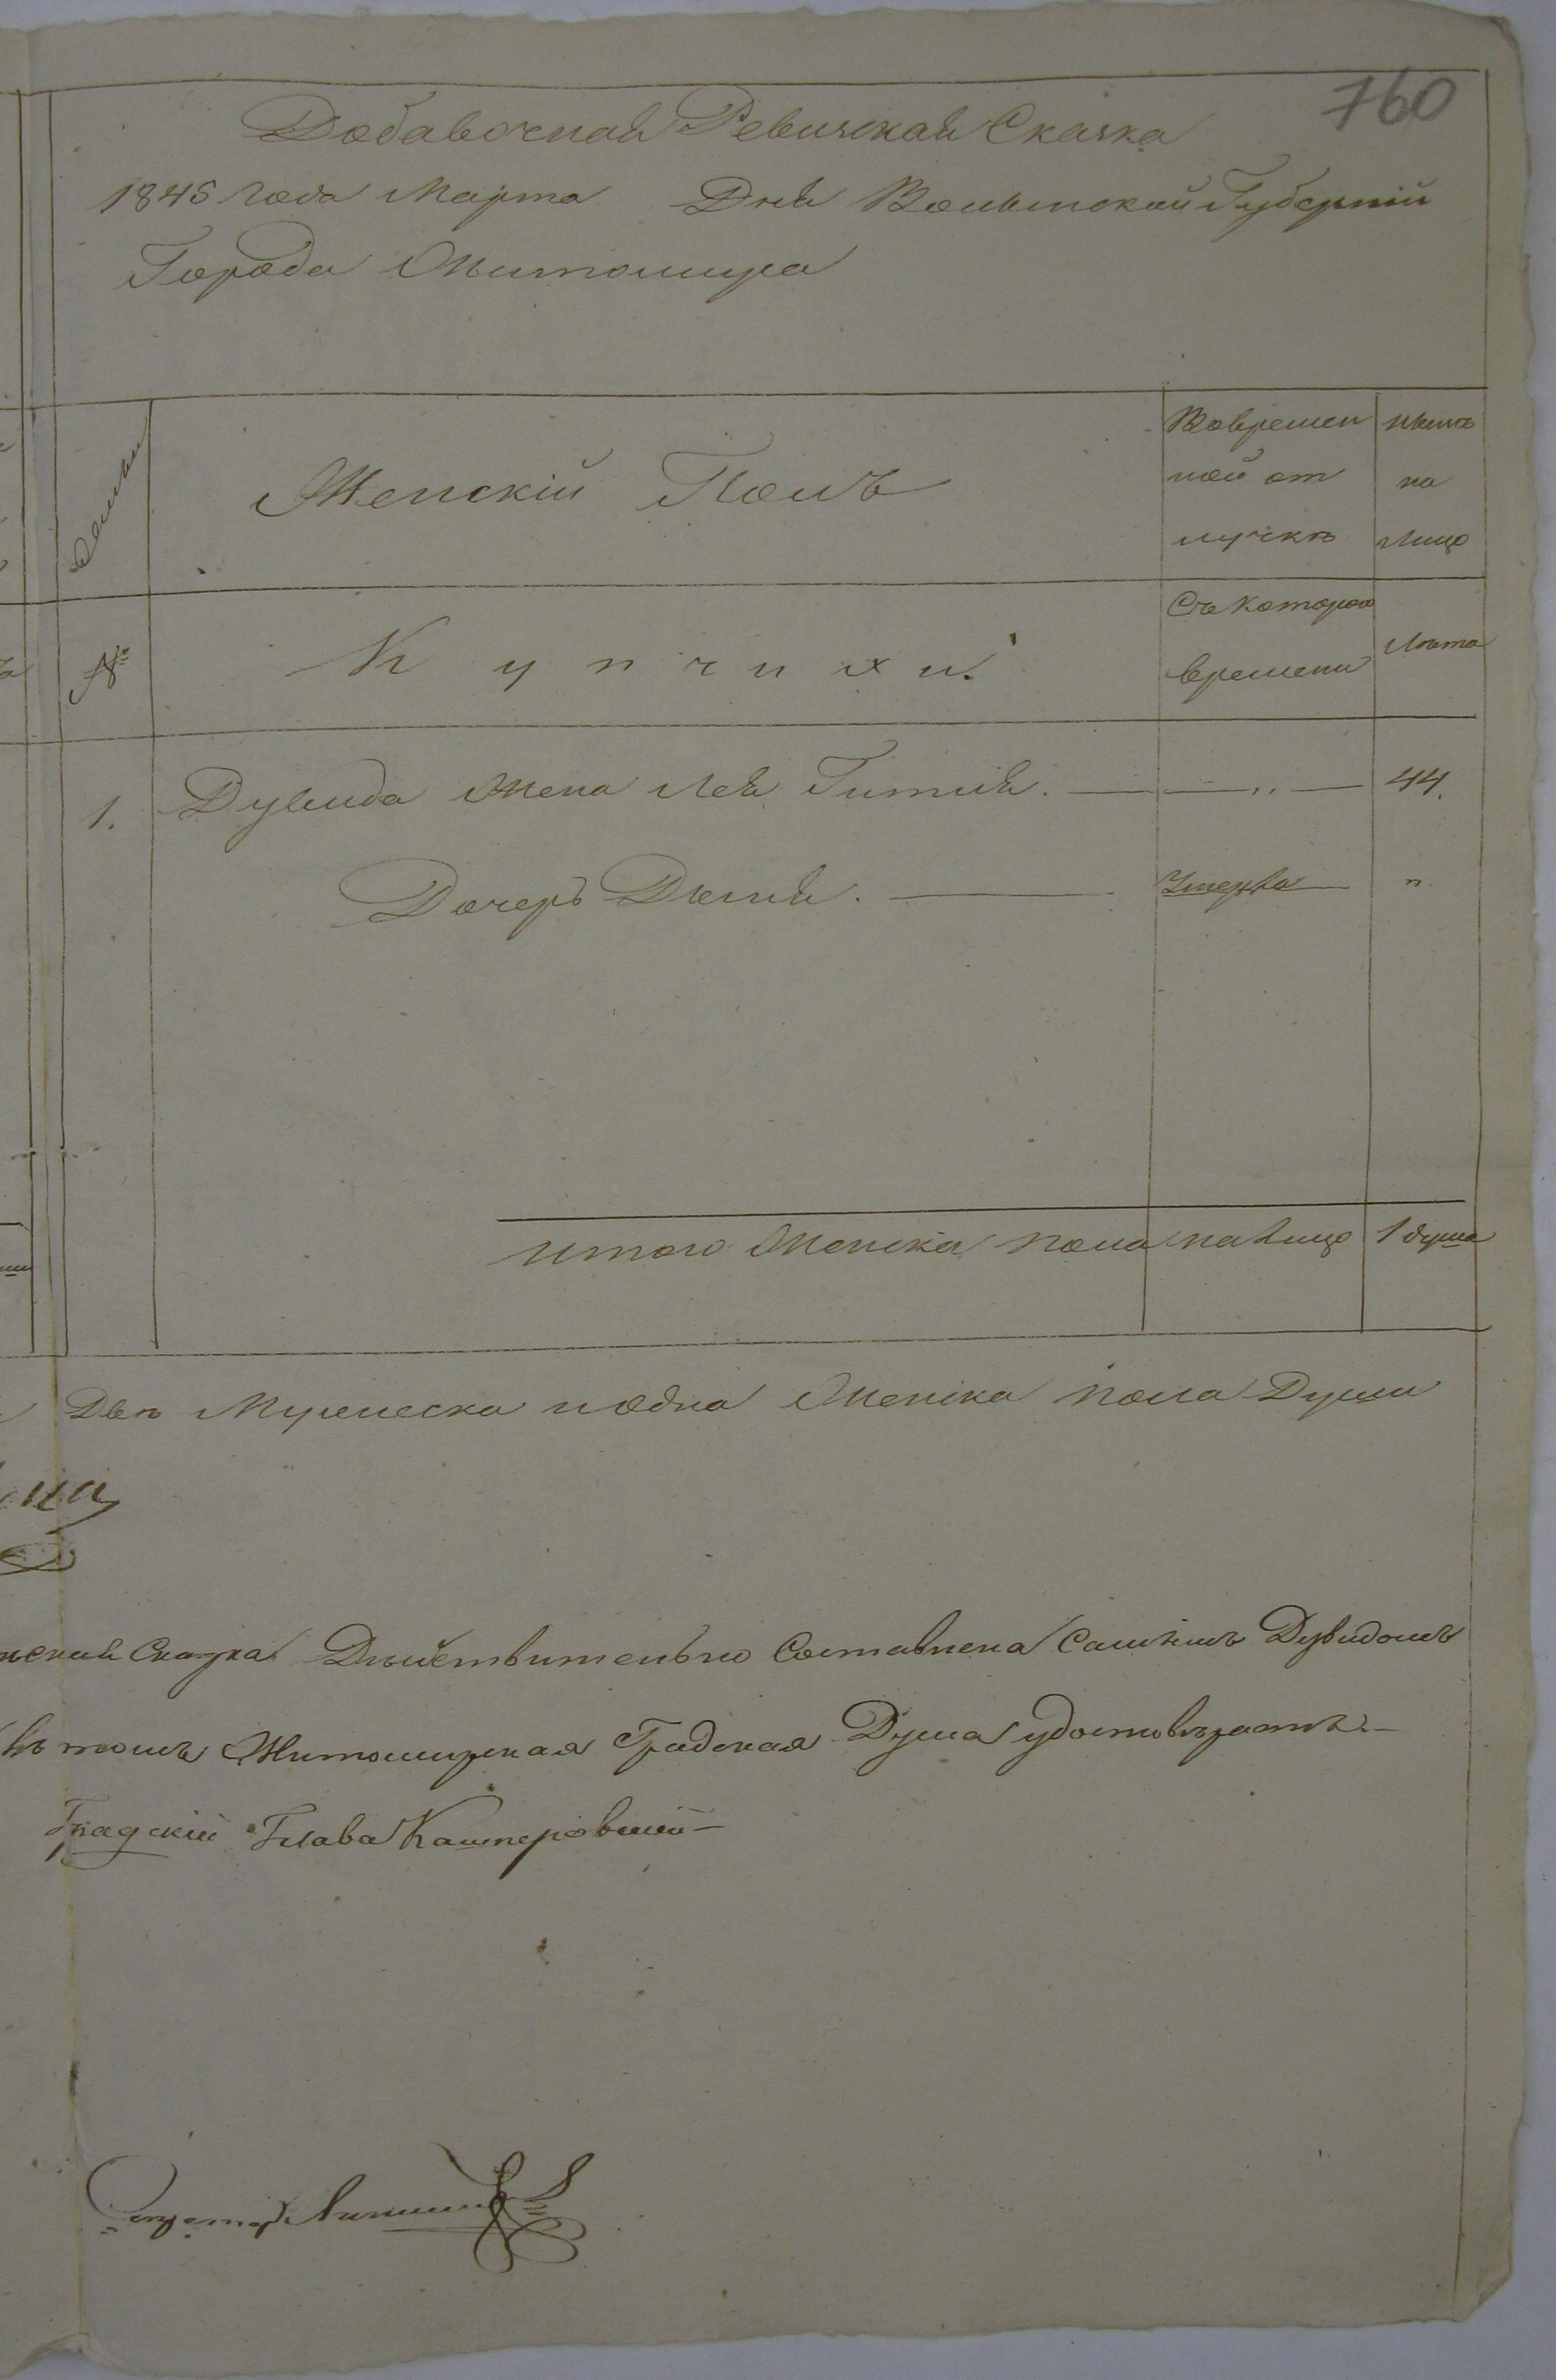 760
Добавочная Ревизская Сказка
1845 года Марта Дня Волынской Губерній
Города Житомира
Семьи
Женскій Полъ
Вовремен
ной от
лучкѣ
нынѣ
на
лицо
№
Купчихи.
Съ которого
времени
Лѣта
1. Дувида жена Лея Гитля. — „ — 44.
Дочерь Двыля. Умерла "
итого женска пола на лицо 1 душа
Двѣ Мужеска и одна женска пола Души
Сказка Дѣйствительно Составлена Самимъ Дувидомъ
въ томъ Житомирская Градская Дума удостовѣряетъ.
Градскій Глава Кашперовскій